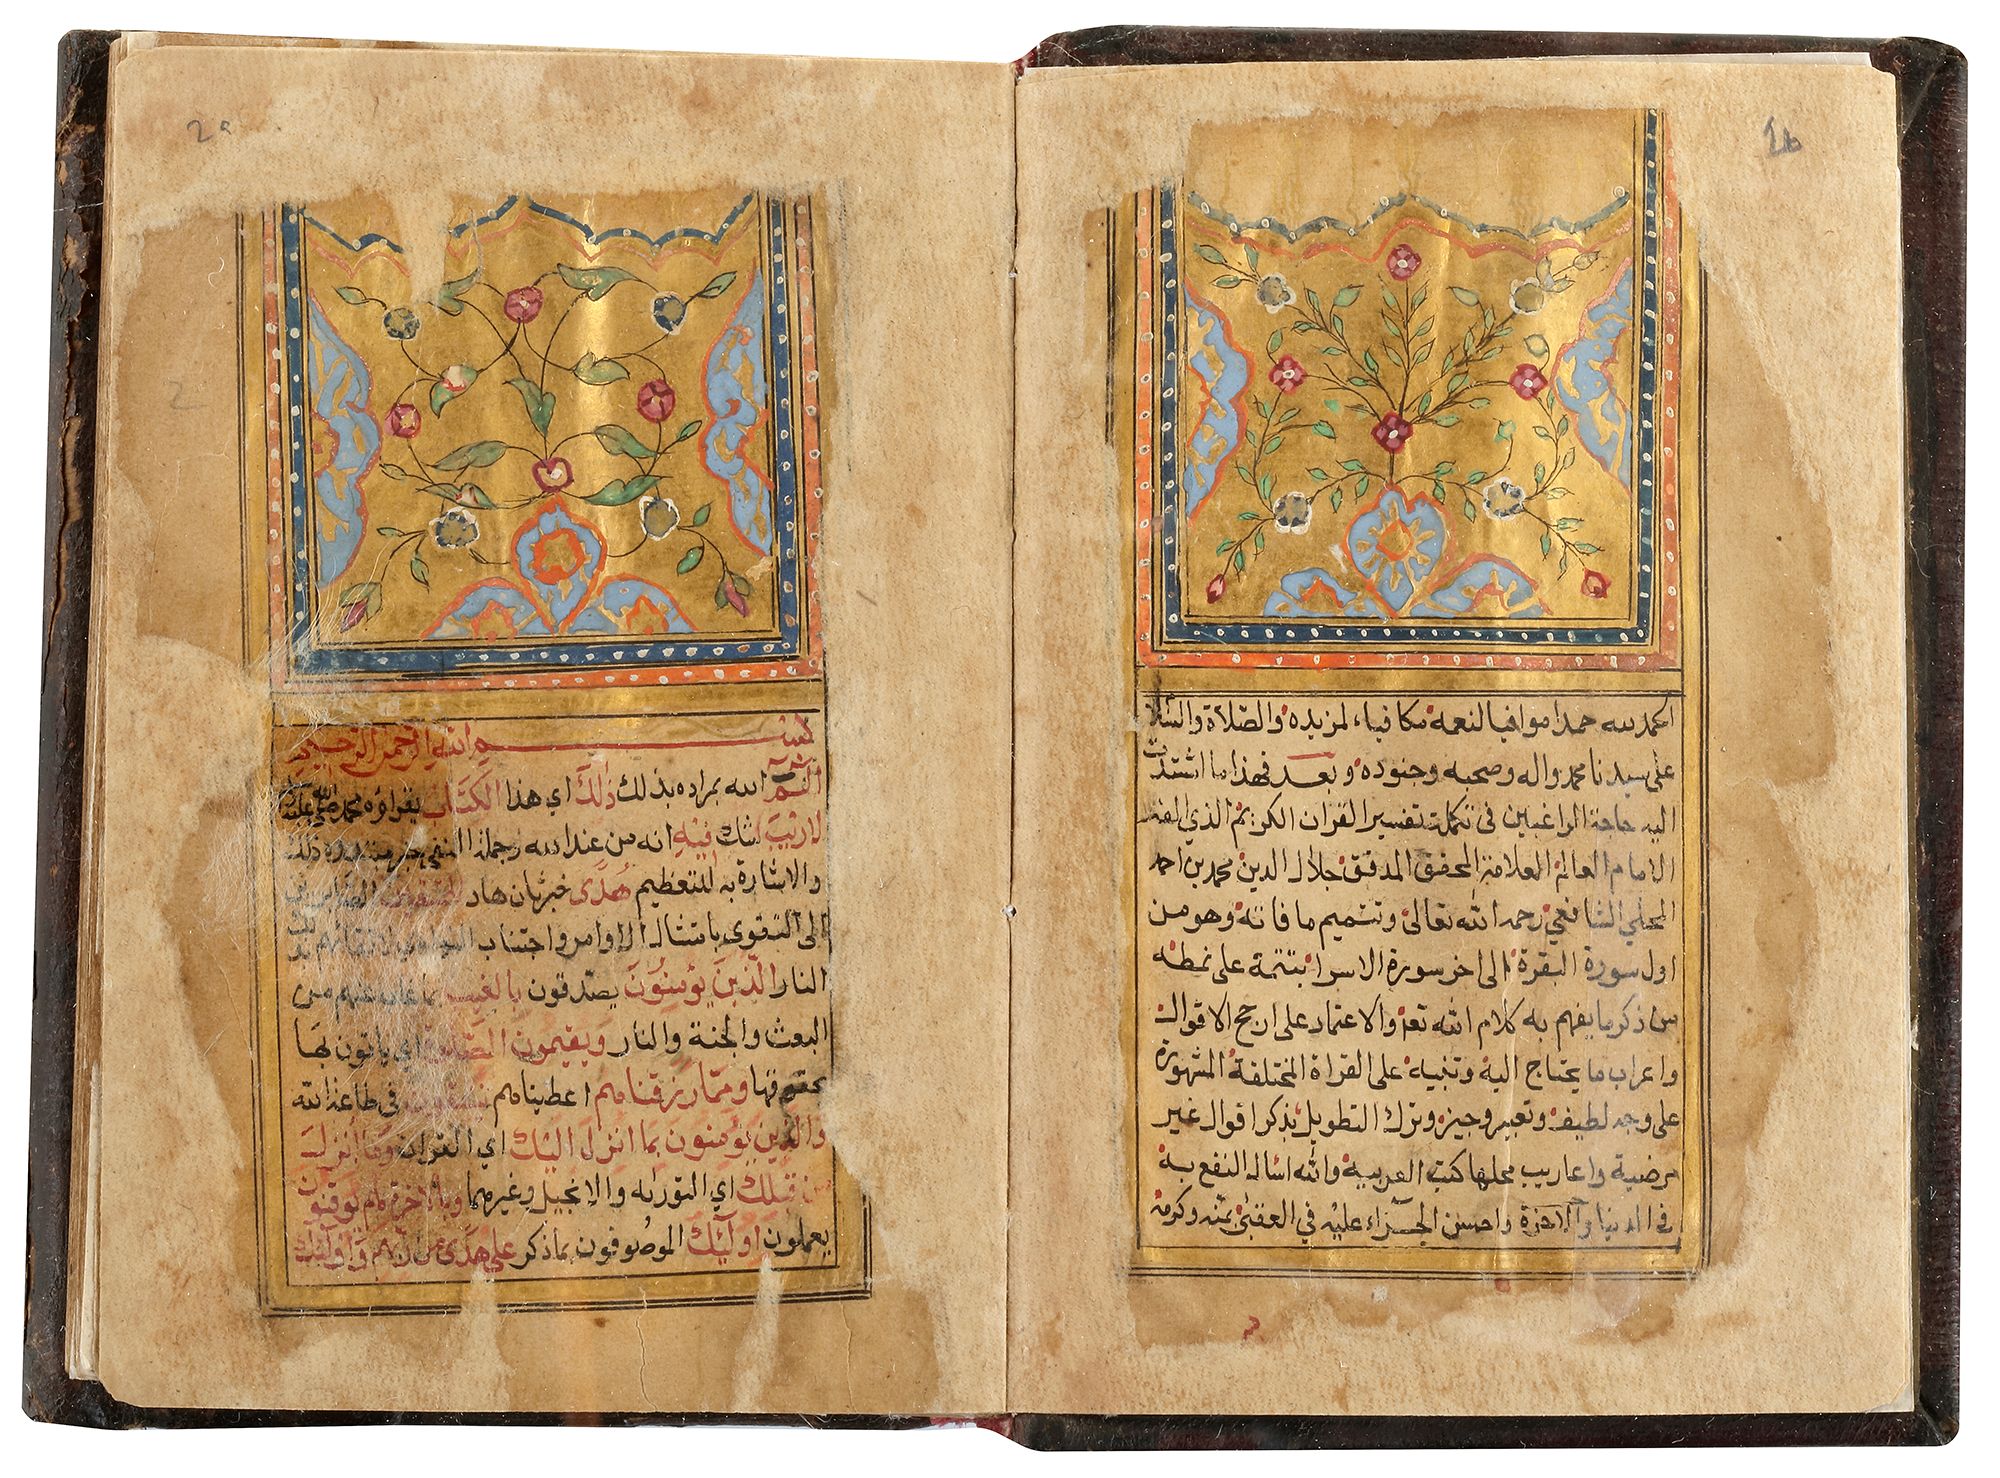 1b
الحمد لله حمدا موافيا لنعمه مكافيا لمزيده والصلاة والسلا
على سيدنا محمد واله وصحبه وجنوده وبعد فهذا ما اشتدت
اليه حاجة الراغبين فى تكملة تفسير القران الكريم الذي الفه
الامام العالم العلامة المحقق المدقق جلال الدين محمد بن احمد
المحلي الشافعي رحمه الله تعالى وتتميم ما فاته وهو من
اول سورة البقرة الى اخر سورة الاسرا بتتمة على نمطه
من ذكر ما يفهم به كلام الله تعـ والاعتماد على ارجح الاقوال
واعراب ما يحتاج اليه وتنبيه على القراة المختلفة المشهورة
على وجه لطيف وتعبير وجيز وترك التطويل بذكر اقوال غير
مرضية واعاريب محلها كتب العربية والله اسال النفع به
فى الدنيا والاخرة واحسن الجزاء عليه في العقبى بمنه وكرمه
2a
2
بسم الله الرحمن الرحيم
الم الله بمراده بذلك ذلك اي هذا الكتاب يقراوه محمد صلى الله عليه
لا ريب شك فيه انه من عند الله وجملة النفي خبر مبتدوه ذلك
والاشارة به للتعظيم هدى خبر ثان هاد للمتقين الصائرين
الى التقوى بامتثال الاوامر واجتناب النواهي لاتقائهم بذلك
النار الذين يؤمنون يصدقون بالغيب بما غاب عنهم من
البعث والجنة والنار ويقيمون الصلوة اي ياتون بها
بحقوقها ومما رزقناهم اعطيناهم ينفقون فى طاعة الله
والذين يؤمنون بما انزل اليك اي القران وما انزل
من قبلك اي التوراه والانجيل وغيرهما وبالاخرة هم يوقنون
يعملون اوليك الموصوفون بما ذكر على هدى من ربهم واوليك